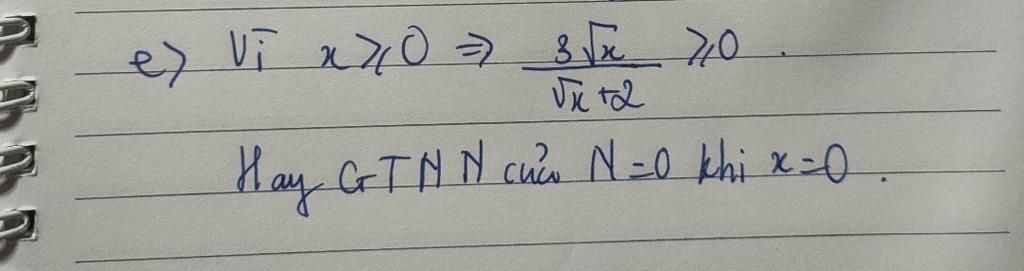 e) Vì x ≥ 0 ⇒ 3√x / (√x + 2) ≥ 0.
Hay GTNN của N = 0 khi x = 0.